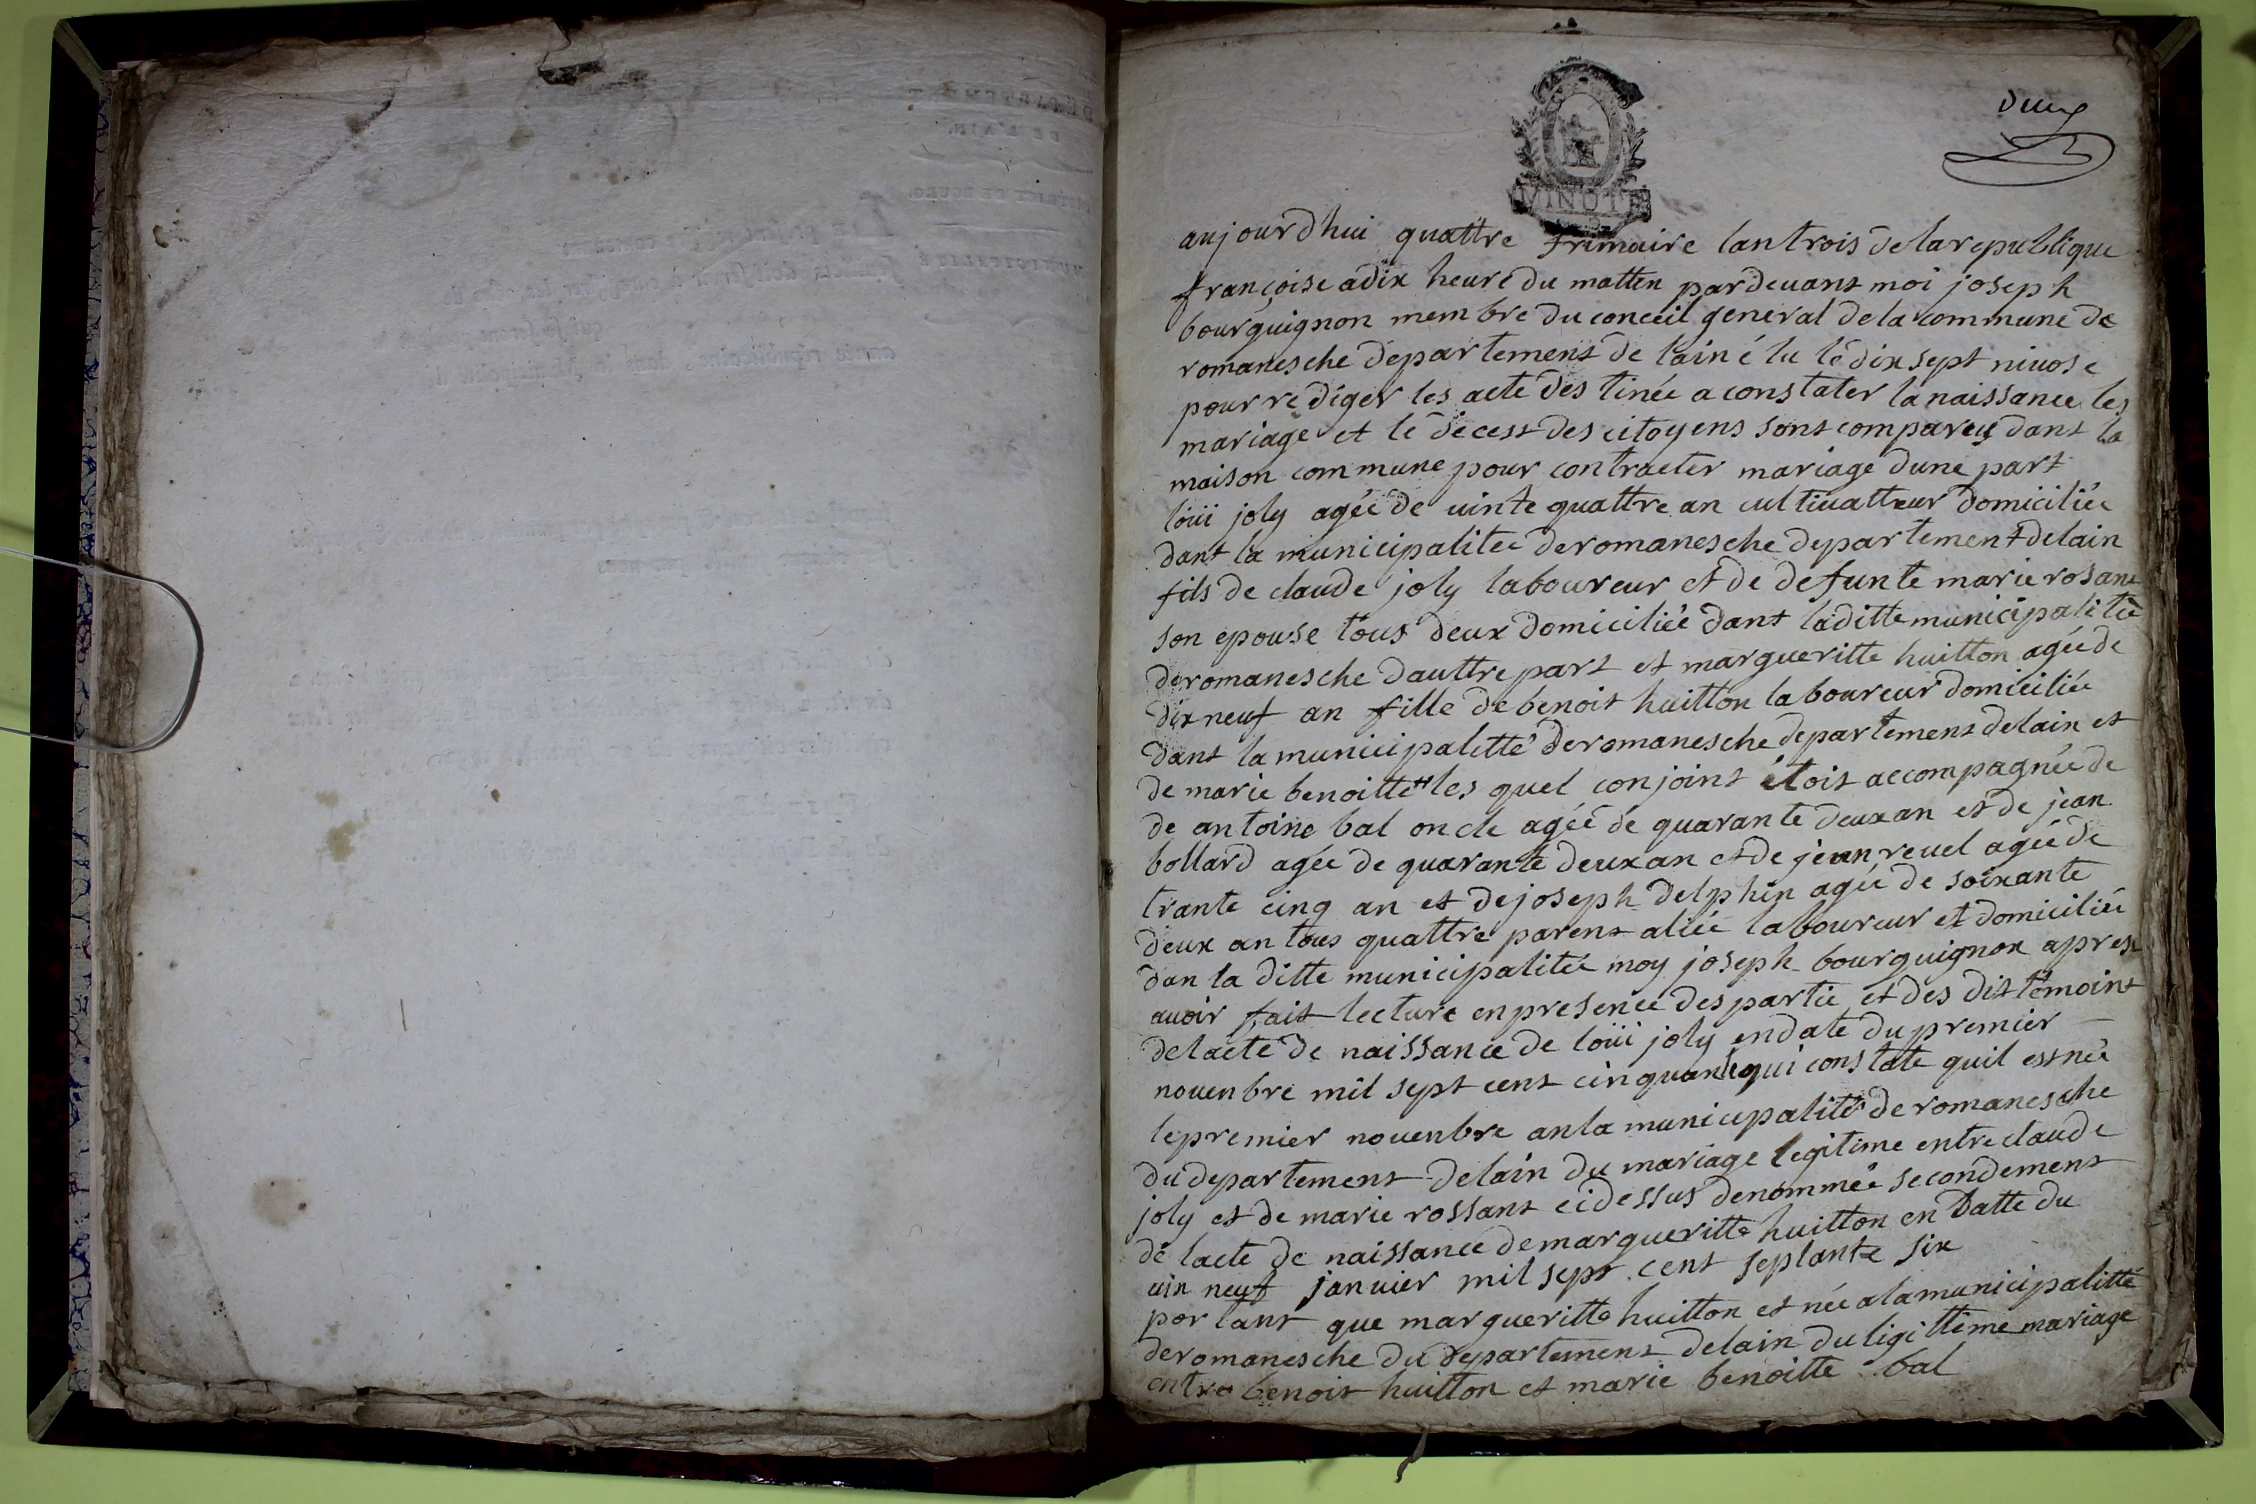 deux
aujourdhui quattre frimaire lan trois de la republique
françoise a dix heure du matten pardevant moi joseph
bourguignon membre du conceil general de la commune de
romanesche departement de lain é lu le dix sept nivose
pour rediger les acte des tinée a constater la naissance les
mariage et le decest des citoyens sont compareu dant la
maison commune pour contracter mariage dune part
loüi joly agée de vinte quattre an cultivatteur domiciliée
dant la municipalitée de romanesche departement delain
fils de claude joly laboureur et de defunte marie rosant
son epouse tous deux domiciliée dant laditte municipalitée
de romanesche dauttre part et margueritte huitton agée de
dix neuf an fille de benoit huitton laboureur domiciliée
dant la municipalitté de romanesche departement delain et
de marie benoitte les quel conjoint étoit accompagnée de
de antoine bal oncle agée de quarante deux an et de jean
bollard agée de quarante deux an et de jean revel agée de
trante cinq an et de joseph delphin agée de soixante
deux an tous quattre parent aliée laboureur et domiciliée
dan la ditte municipalitée moy joseph bourguignon apres
avoir fait lecture en presence des partie et des dit témoint
delacte de naissance de loüi joly en date du premier
novenbre mil sept cent cinquante qui constate quil est née
le premier novenbre an la municipalité de romanesche
du departement delain du mariage legitime entre claude
joly et de marie rossant ci dessus denommée secondement
de lacte de naissance de margueritte huitton en datte du
vin neuf janvier mil sept cent septante six
portant que margueritte huitton et née a la municipalitté
de romanesche du departement delain du ligittime mariage
entre benoit huitton et marie benoitte bal